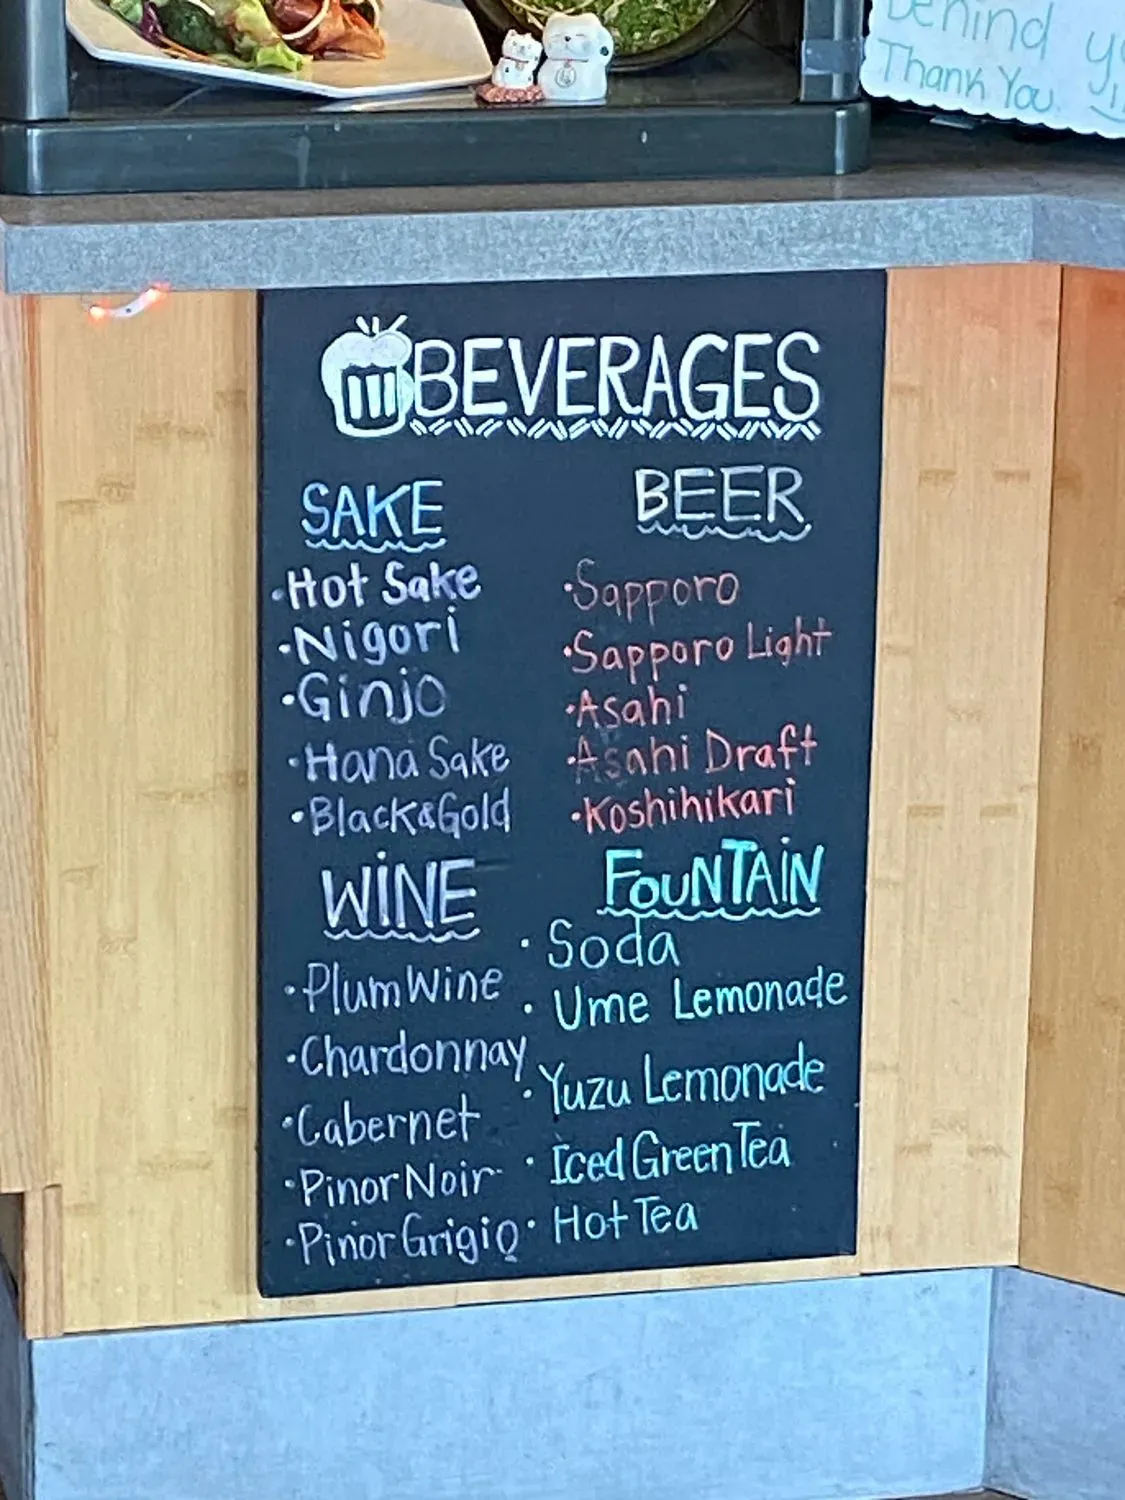 behind
Thank You
BEVERAGES
SAKE
·Hot Sake
·Nigori
·Ginjo
·Hana Sake
·Black&Gold
BEER
·Sapporo
·Sapporo Light
·Asahi
·Asahi Draft
·Koshihikari
WINE
·Plum Wine
·Chardonnay
·Cabernet
·Pinor Noir
·Pinor Grigio
FOUNTAIN
· Soda
· Ume Lemonade
· Yuzu Lemonade
· Iced Green Tea
· Hot Tea